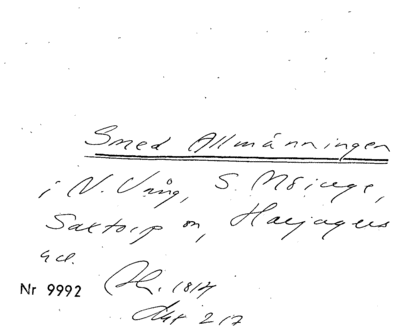 Smed Allmänningen
i N. Vrång, S. Möinge,
Saxtorp sn, Harjagers
hd.
Nr 9992 Ak. 1814
Akt 217